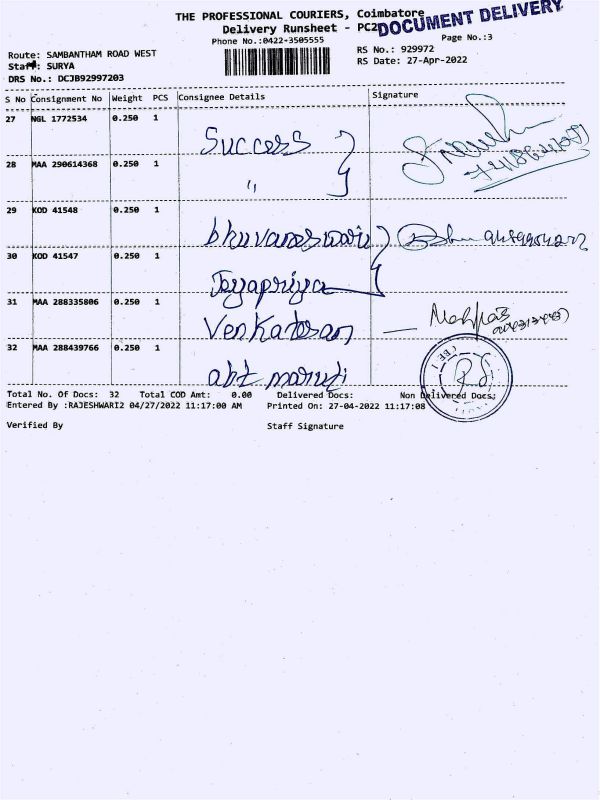 THE PROFESSIONAL COURIERS, Coimbatore
DOCUMENT DELIVERY
Delivery Runsheet - PC2
Phone No.:0422-3505555
Page No.:3
Route: SAMBANTHAM ROAD WEST
RS No.: 929972
Staff: SURYA
RS Date: 27-Apr-2022
DRS No.: DCJB92997203
S No Consignment No Weight PCS Consignee Details Signature
27 NGL 1772534 0.250 1
Success
28 MAA 290614368 0.250 1
"
29 KOD 41548 0.250 1
bhuvaneswari
30 KOD 41547 0.250 1
Jayapriya
31 MAA 288335806 0.250 1
Venkatesan
32 MAA 288439766 0.250 1
abt maruti
Total No. Of Docs: 32 Total COD Amt: 0.00 Delivered Docs: Non Delivered Docs:
Entered By :RAJESHWARI2 04/27/2022 11:17:00 AM Printed On: 27-04-2022 11:17:08
Verified By Staff Signature